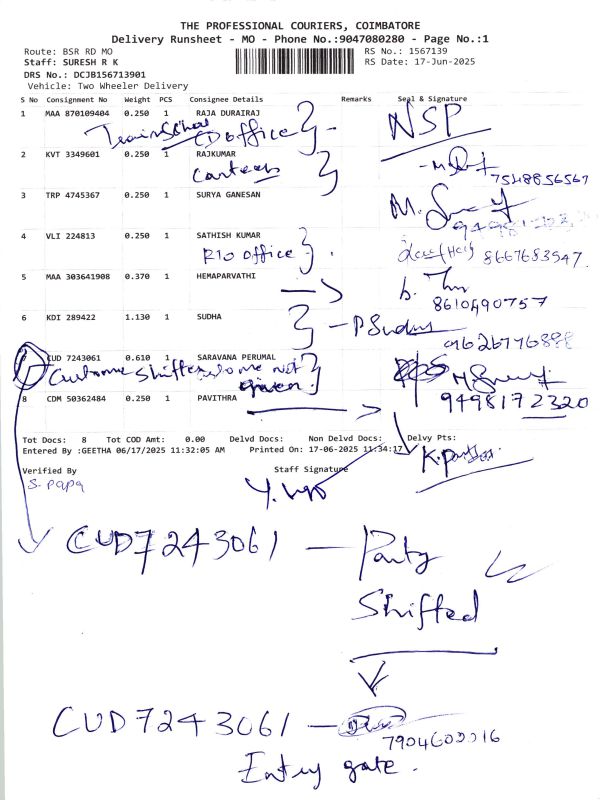 THE PROFESSIONAL COURIERS, COIMBATORE
Delivery Runsheet - MO - Phone No.:9047080280 - Page No.:1
Route: BSR RD MO RS No.: 1567139
Staff: SURESH R K RS Date: 17-Jun-2025
DRS No.: DCJB156713901
Vehicle: Two Wheeler Delivery
S No Consignment No Weight PCS Consignee Details Remarks Seal & Signature
1 MAA 870109404 0.250 1 RAJA DURAIRAJ
CD office NSP
2 KVT 3349601 0.250 1 RAJKUMAR
Canteen 7548856567
3 TRP 4745367 0.250 1 SURYA GANESAN
4 VLI 224813 0.250 1 SATHISH KUMAR
R10 office 8667683547
5 MAA 303641908 0.370 1 HEMAPARVATHI
8610490757
6 KDI 289422 1.130 1 SUDHA
P Sudha
7 CUD 7243061 0.610 1 SARAVANA PERUMAL
given
8 CDM 50362484 0.250 1 PAVITHRA
9498172320
Tot Docs: 8 Tot COD Amt: 0.00 Delvd Docs: Non Delvd Docs: Delvy Pts:
Entered By :GEETHA 06/17/2025 11:32:05 AM Printed On: 17-06-2025 11:34:17
Verified By Staff Signature
S. Papa
CUD7243061 — Party
Shifted
CUD7243061 —
Entry gate.